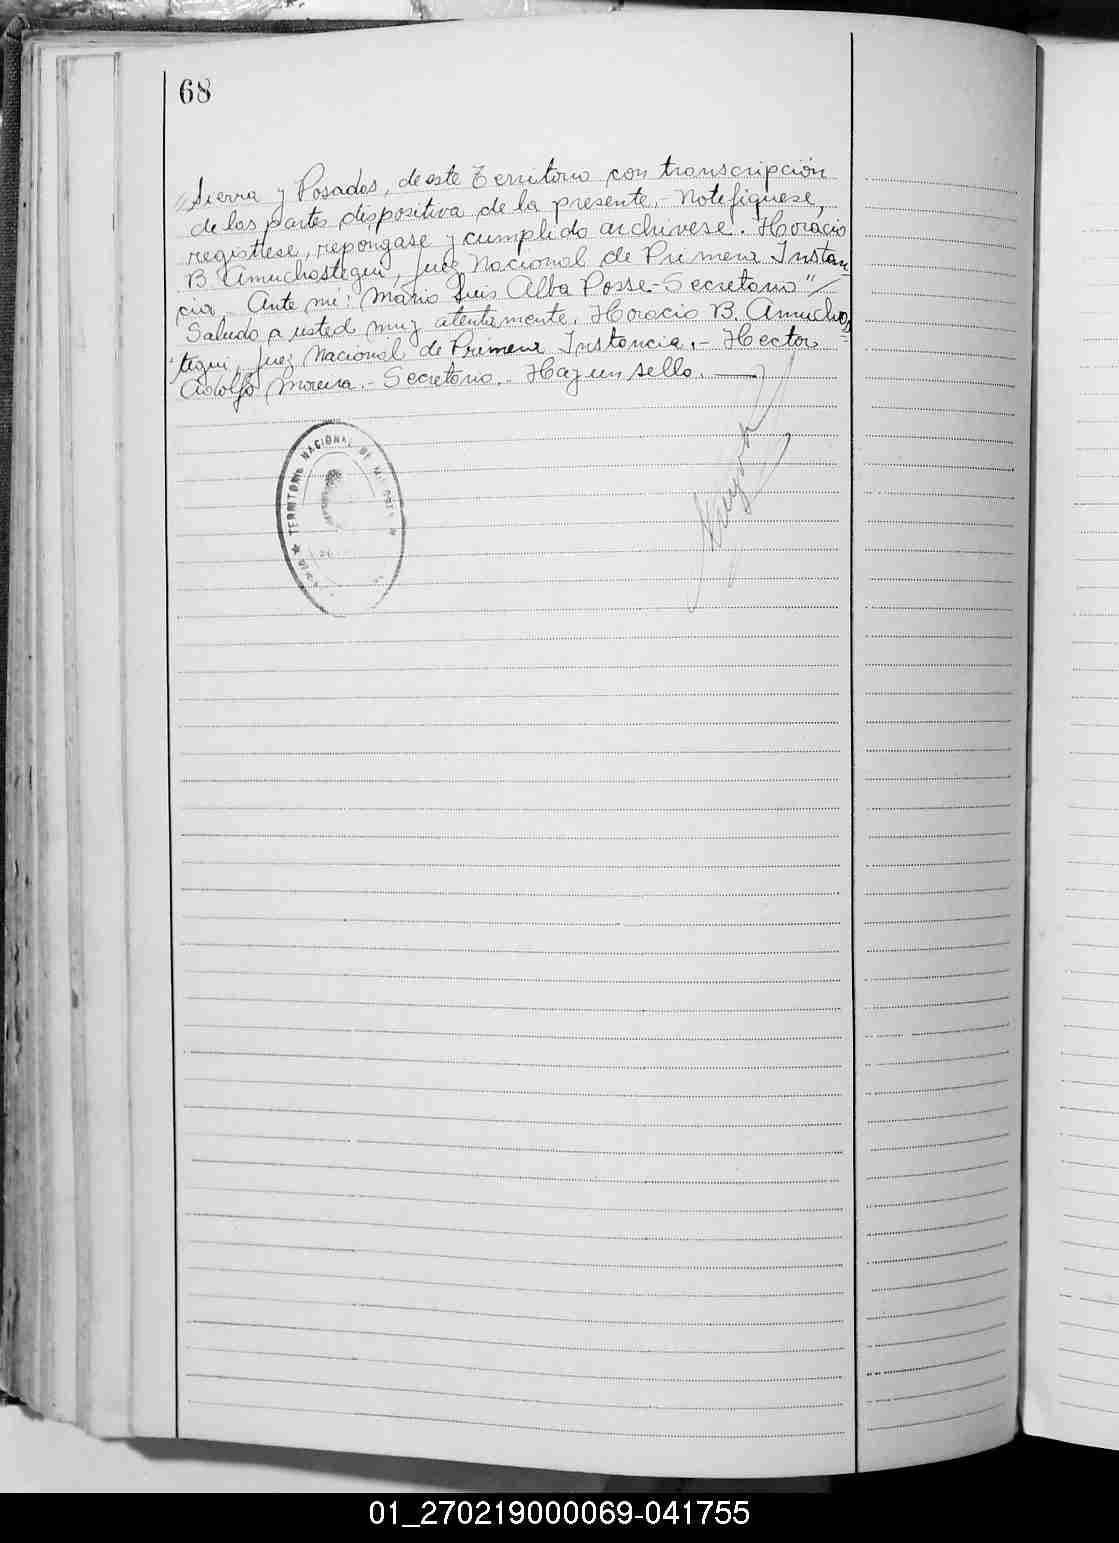 68
"Sierra y Posadas, de este Territorio con transcripción
de las partes dispositiva de la presente.- Notefiquese,
registrese, repongase y cumplido archivese. Horacio
B. Amuchastegui, Juez Nacional de Primera Instan-
cia. Ante mi: Mario Luis Alba Posse.- Secretario"/
Saludo a usted muy atentamente. Horacio B. Amuchas-
tegui, Juez Nacional de Primera Instancia.- Hector
Adolfo Moreira.- Secretario.- Hay un sello.
TERRITORIO NACIONAL DE MISIONES
01_270219000069-041755